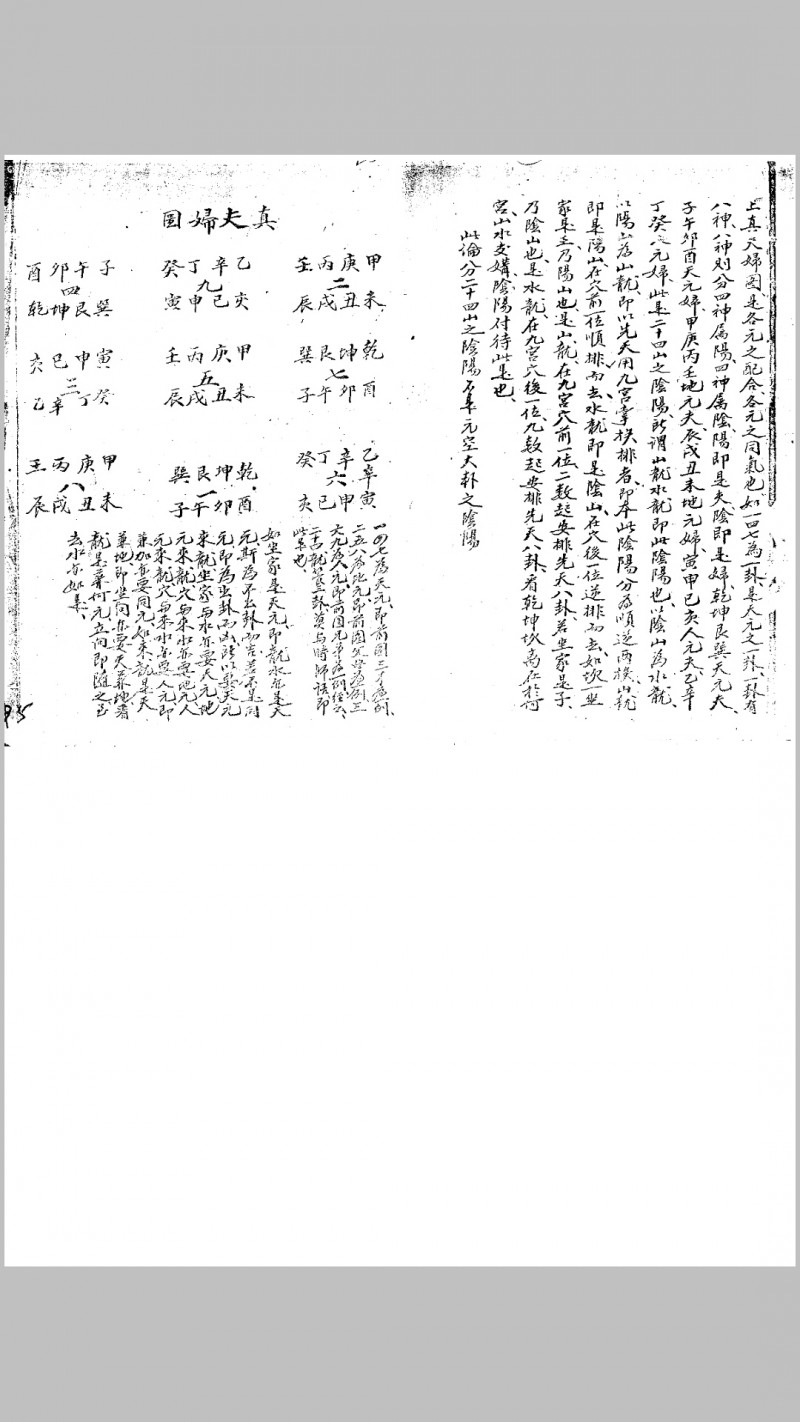 上真夫婦图是各元之配合各元之同氣也如一四七為一卦是天元之一卦一卦有
八神八神則分四神属陽四神属陰陽即是夫陰即是婦乾坤艮巽天元夫
子午卯酉天元婦甲庚丙壬地元夫辰戌丑未地元婦寅申巳亥人元夫乙辛
丁癸人元婦此是二十四山之陰陽所謂山龍水龍即此陰陽也以陰山為水龍
以陽山為山龍即以先天用九宮掌模排者即本此陰陽分為順逆两模山龍
即是陽山在穴前一位順排而去水龍即是陰山在穴後一位逆排而去如坎一坐
家是壬乃陽山也是山龍在九宮穴前一位二数起安排先天八卦若坐家是子
乃陰山也是水龍在九宮穴後一位九数起安排先天八卦看乾坤坎离在於何
宮山水支媾陰陽付待此是也
此倫分二十四山之陰陽不是元空大卦之陰陽
真夫婦图
甲庚丙壬
二
未丑戌辰
乙辛丁癸
九
亥巳申寅
子午卯酉
四
巽艮坤乾
乾坤艮巽
七
酉卯午子
甲庚丙壬
五
未丑戌辰
寅申巳亥
三
癸丁辛乙
乙辛丁癸
六
寅申巳亥
乾坤艮巽
一
酉卯午子
甲庚丙壬
八
未丑戌辰
一四七為天元即前图三才為例
二五八為地元即前图父母為例三
六九為人元即前图元第為一例经云
二十四龍管三卦莫与時师话即
此是也
如坐家是天元即龍水亦是天
元斯為不出卦而吉若不是同
元即為出卦而凶所以要天元
來龍坐家与水亦要天元地
元來龍穴与來水亦要地元人
元來龍穴与來水亦要人元即
兼加亦要同元如來龍是天
兼地即坐向亦要天兼地看
龍是兼何元立向即随之已
去水亦如是
95